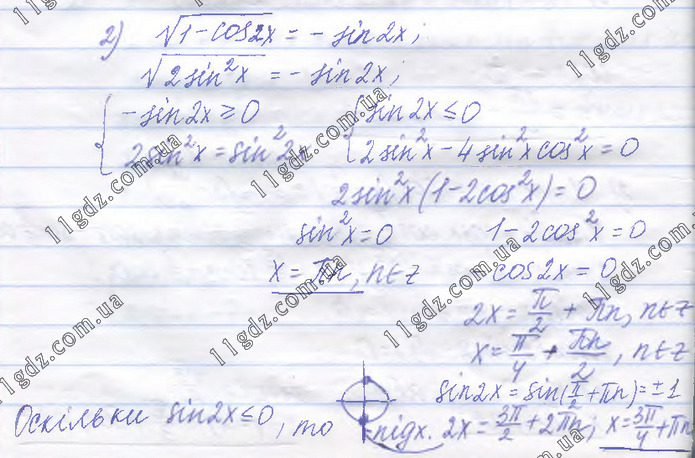 2) √1-cos2x = - sin2x;
√2sin²x = - sin2x;
{ -sin2x ≥ 0 { sin2x ≤ 0
2sin²x = sin²2x { 2sin²x - 4sin²xcos²x = 0
2sin²x(1-2cos²x) = 0
sin²x = 0 1-2cos²x = 0
x = πn, n∈z -cos2x = 0
2x = π/2 + πn, n∈z
x = π/4 + πn/2, n∈z
sin2x = sin(π/2 + πn) = ±1
Оскільки sin2x ≤ 0, то підх. 2x = 3π/2 + 2πn; x = 3π/4 + πn
11gdz.com.ua
11gdz.com.ua
11gdz.com.ua
11gdz.com.ua
11gdz.com.ua
11gdz.com.ua
11gdz.com.ua
11gdz.com.ua